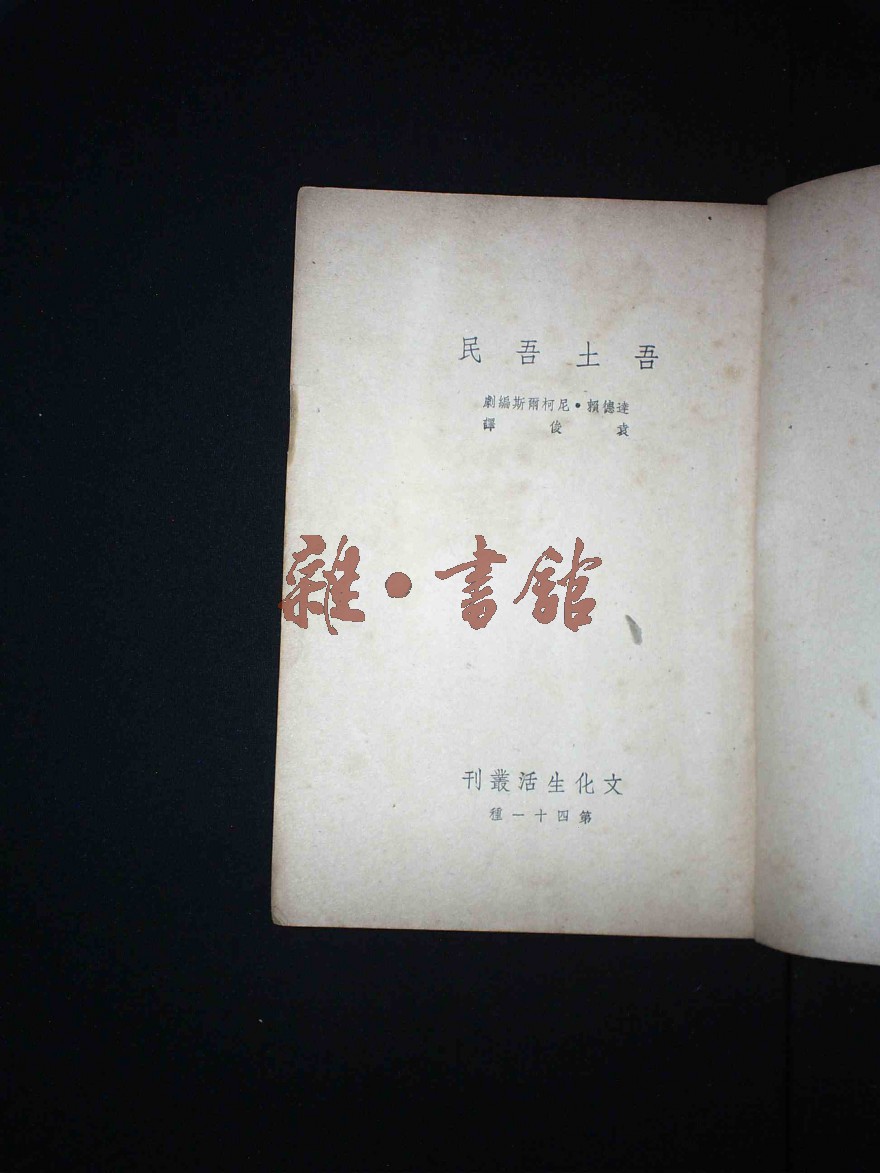 吾土吾民
達德賴•尼柯爾斯編劇
袁俊譯
雜•書館
文化生活叢刊
第四十一種